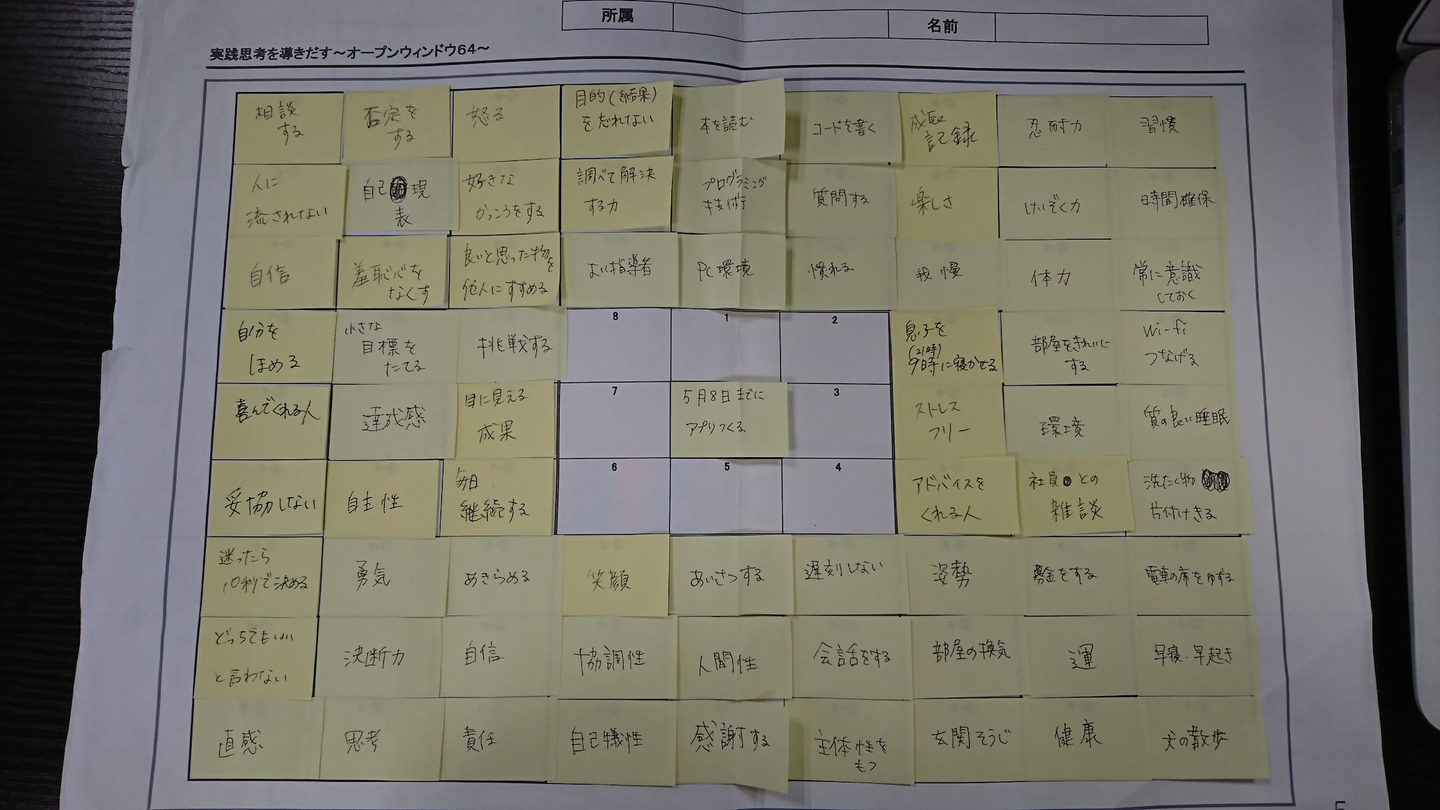 所属
名前
実践思考を導きだす～オープンウィンドウ６４～
相談
する
否定を
する
怒る
目的(結果)
を忘れない
本を読む
コードを書く
成長
記録
忍耐力
習慣
人に
流されない
自己現
表
好きな
かっこうをする
調べて解決
する力
プログラミング
技術
質問する
楽しさ
けいぞく力
時間確保
自信
羞恥心を
なくす
良いと思った物を
他人にすすめる
よい指導者
PC環境
慣れる
我慢
体力
常に意識
しておく
自分を
ほめる
小さな
目標を
たてる
挑戦する
8
1
2
息子を
(21時)
9時に寝かせる
部屋をきれいに
する
Wi-fi
つなげる
喜んでくれる人
達成感
目に見える
成果
7
5月8日までに
アプリつくる
3
ストレス
フリー
環境
質の良い睡眠
妥協しない
自主性
毎日
継続する
6
5
4
アドバイスを
くれる人
社員との
雑談
洗たく物
片付けきる
迷ったら
10秒で決める
勇気
あきらめる
笑顔
あいさつする
遅刻しない
姿勢
募金をする
電車の席をゆずる
どっちでもいい
と言わない
決断力
自信
協調性
人間性
会話をする
部屋の換気
運
早寝・早起き
直感
思考
責任
自己犠牲
感謝する
主体性を
もつ
玄関そうじ
健康
犬の散歩